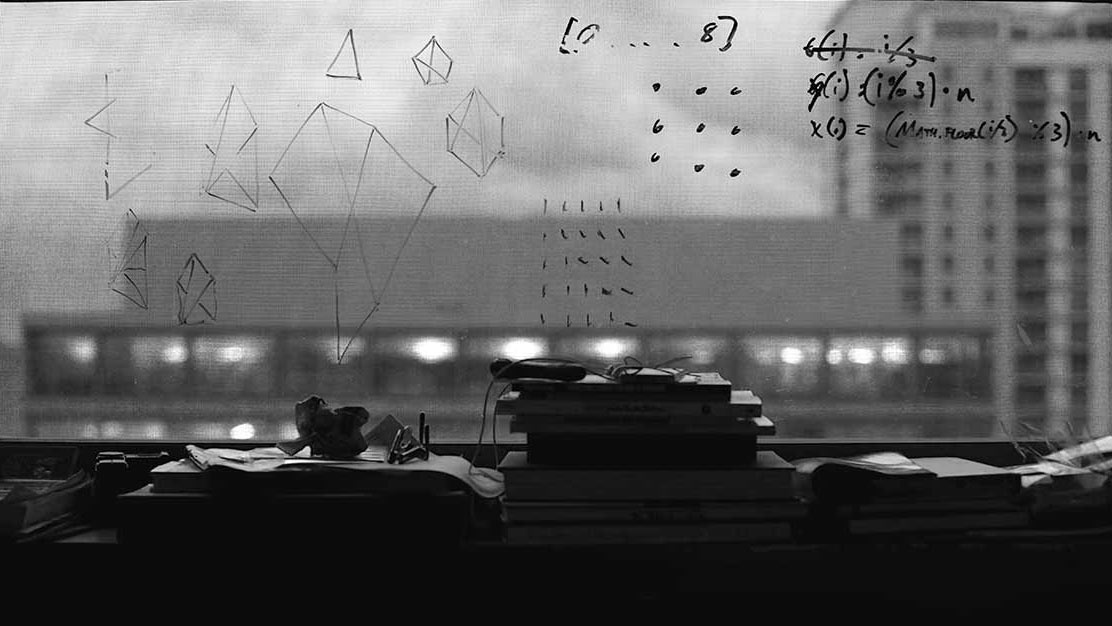 [0 .... 8]
y(i) = (i%3)·n
x(i) = (MATH.FLOOR(i/3) %3)·n